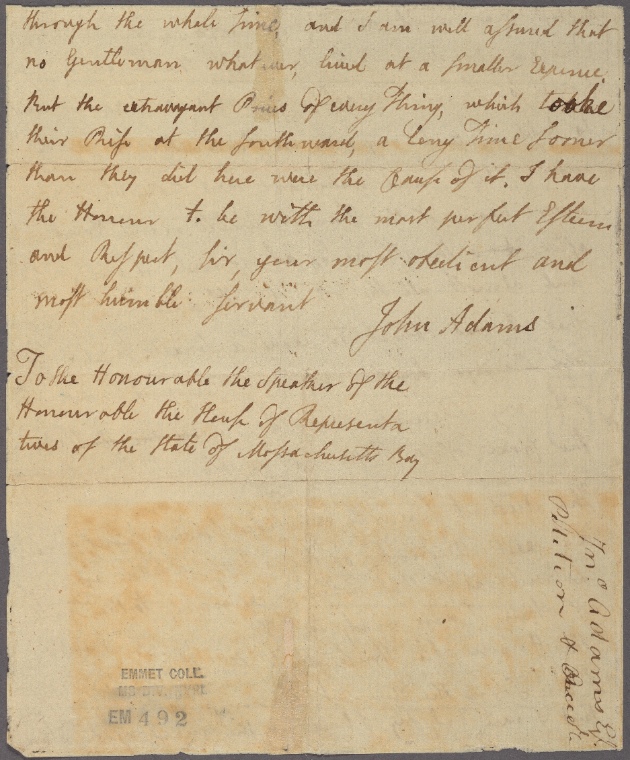 through the whole Time, and I am well assured that
no Gentleman whatever, lived at a smaller Expence.
But the extravagant Prices of every Thing, which tooke
their Rise at the southward, a long Time sooner
than they did here were the Cause of it. I have
the Honour to be with the most perfect Esteem
and Respect, sir, your most obedient and
most humble servant
John Adams
To the Honourable the Speaker of the
Honourable the House of Representa
tives of the State of Massachusetts Bay
Jno Adams Esq.
Petition &
EMMET COLL.
EM 492